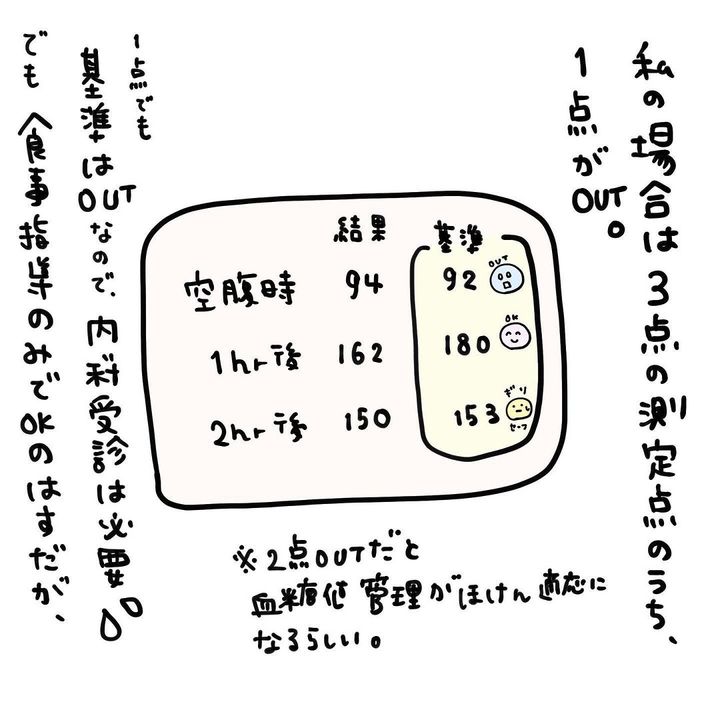 私の場合は3点の測定点のうち、
1点がOUT。
結果 基準
空腹時 94 92 OUT
1hr後 162 180 OK
2hr後 150 153 ギリセーフ
※2点OUTだと
血糖値管理がほけん適応に
なるらしい。
1点でも
基準はOUTなので、内科受診は必要
でも食事指導のみでOKのはずだが、